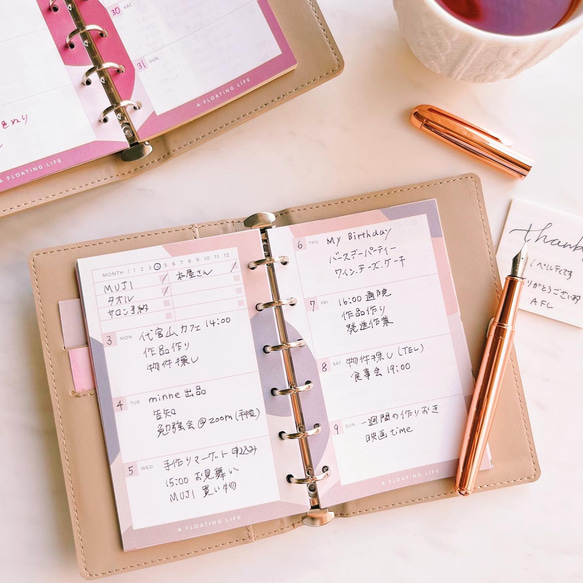 30 SUN
31 SUN
A FLOATING LIFE
A FLOATING LIFE
MONTH / 1 2 3 4 5 6 7 8 9 10 11 12
MUJI
タオル
サロン予約
本屋さん
3 MON 代官山カフェ 14:00
作品作り
物件探し
4 TUE minne 出品
告知
勉強会@zoom
5 WED 手作りマーケット申込み
15:00 お見舞い
MUJI 買い物
A FLOATING LIFE
6 THU My Birthday
バースデーパーティー
ワイン、チーズ、ケーキ
7 FRI 16:00
作品作り
発送作業
8 SAT 物件探し (TEL)
食事会 19:00
9 SUN 一週間の作りおき
映画 time
A FLOATING LIFE
thank
がとうございます
AFL